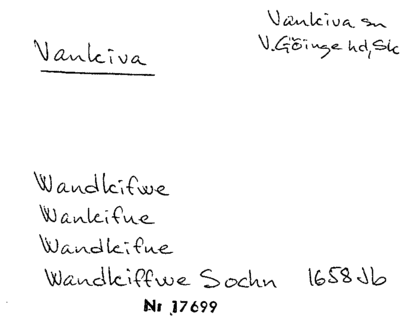 Vankiva
Vankiva sn
V. Göinge hd, Sk
Wandkifwe
Wankifue
Wandkifue
Wandkiffwe Sochn 1658 Jb
Nr 17699